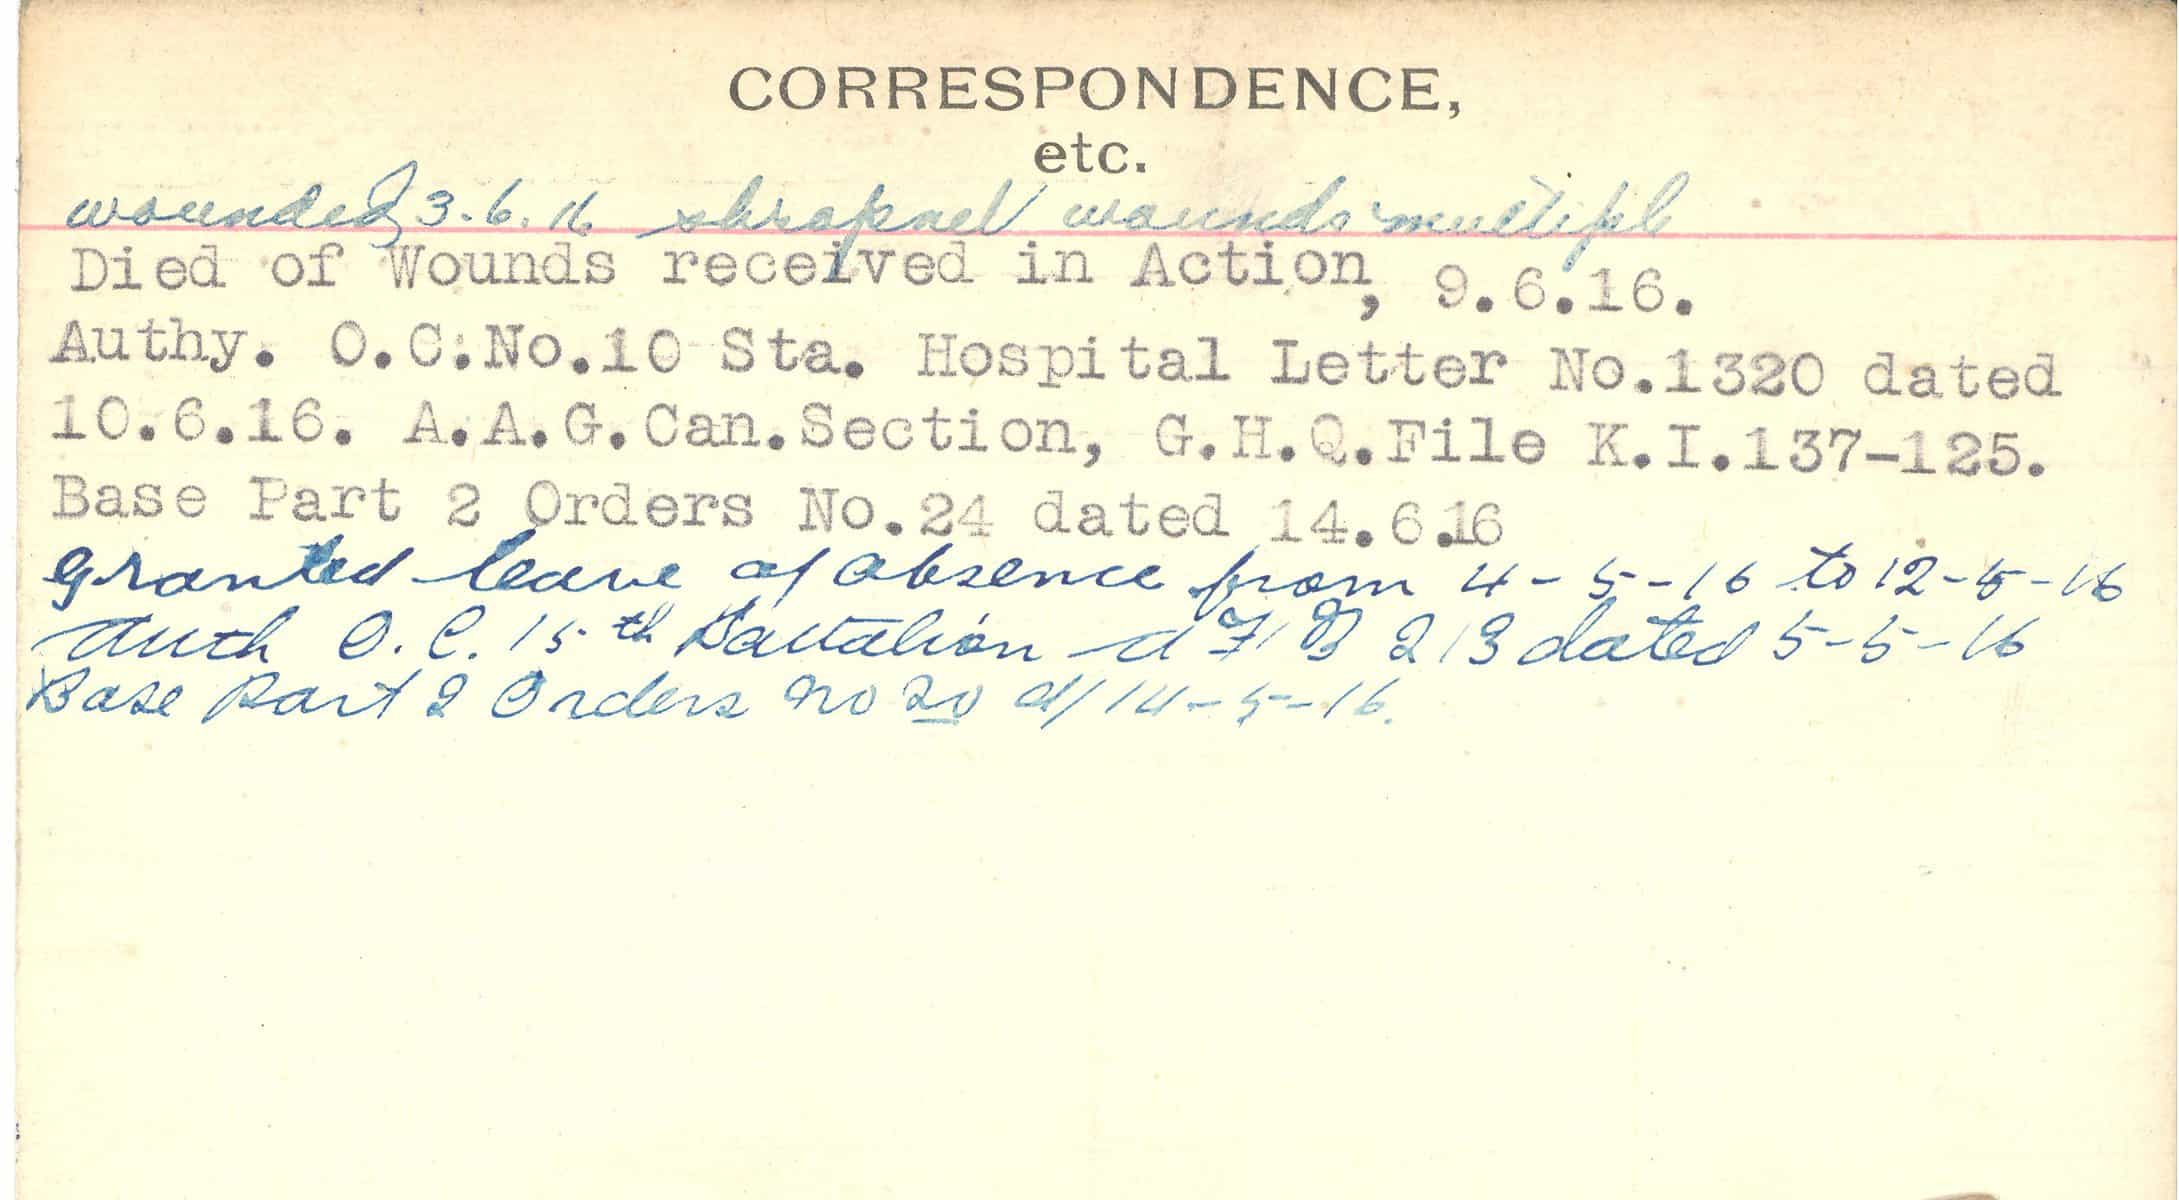 CORRESPONDENCE,
etc.
wounded 3.6.16 shrapnel wounds multiple
Died of Wounds received in Action, 9.6.16.
Authy. O.C.No.10 Sta. Hospital Letter No.1320 dated
10.6.16. A.A.G.Can.Section, G.H.Q.File K.I.137-125.
Base Part 2 Orders No.24 dated 14.6.16
granted leave of absence from 4-5-16 to 12-5-16
Auth O.C. 15th Battalion AF B 213 dated 5-5-16
Base Part 2 Orders no 20 d/14-5-16.